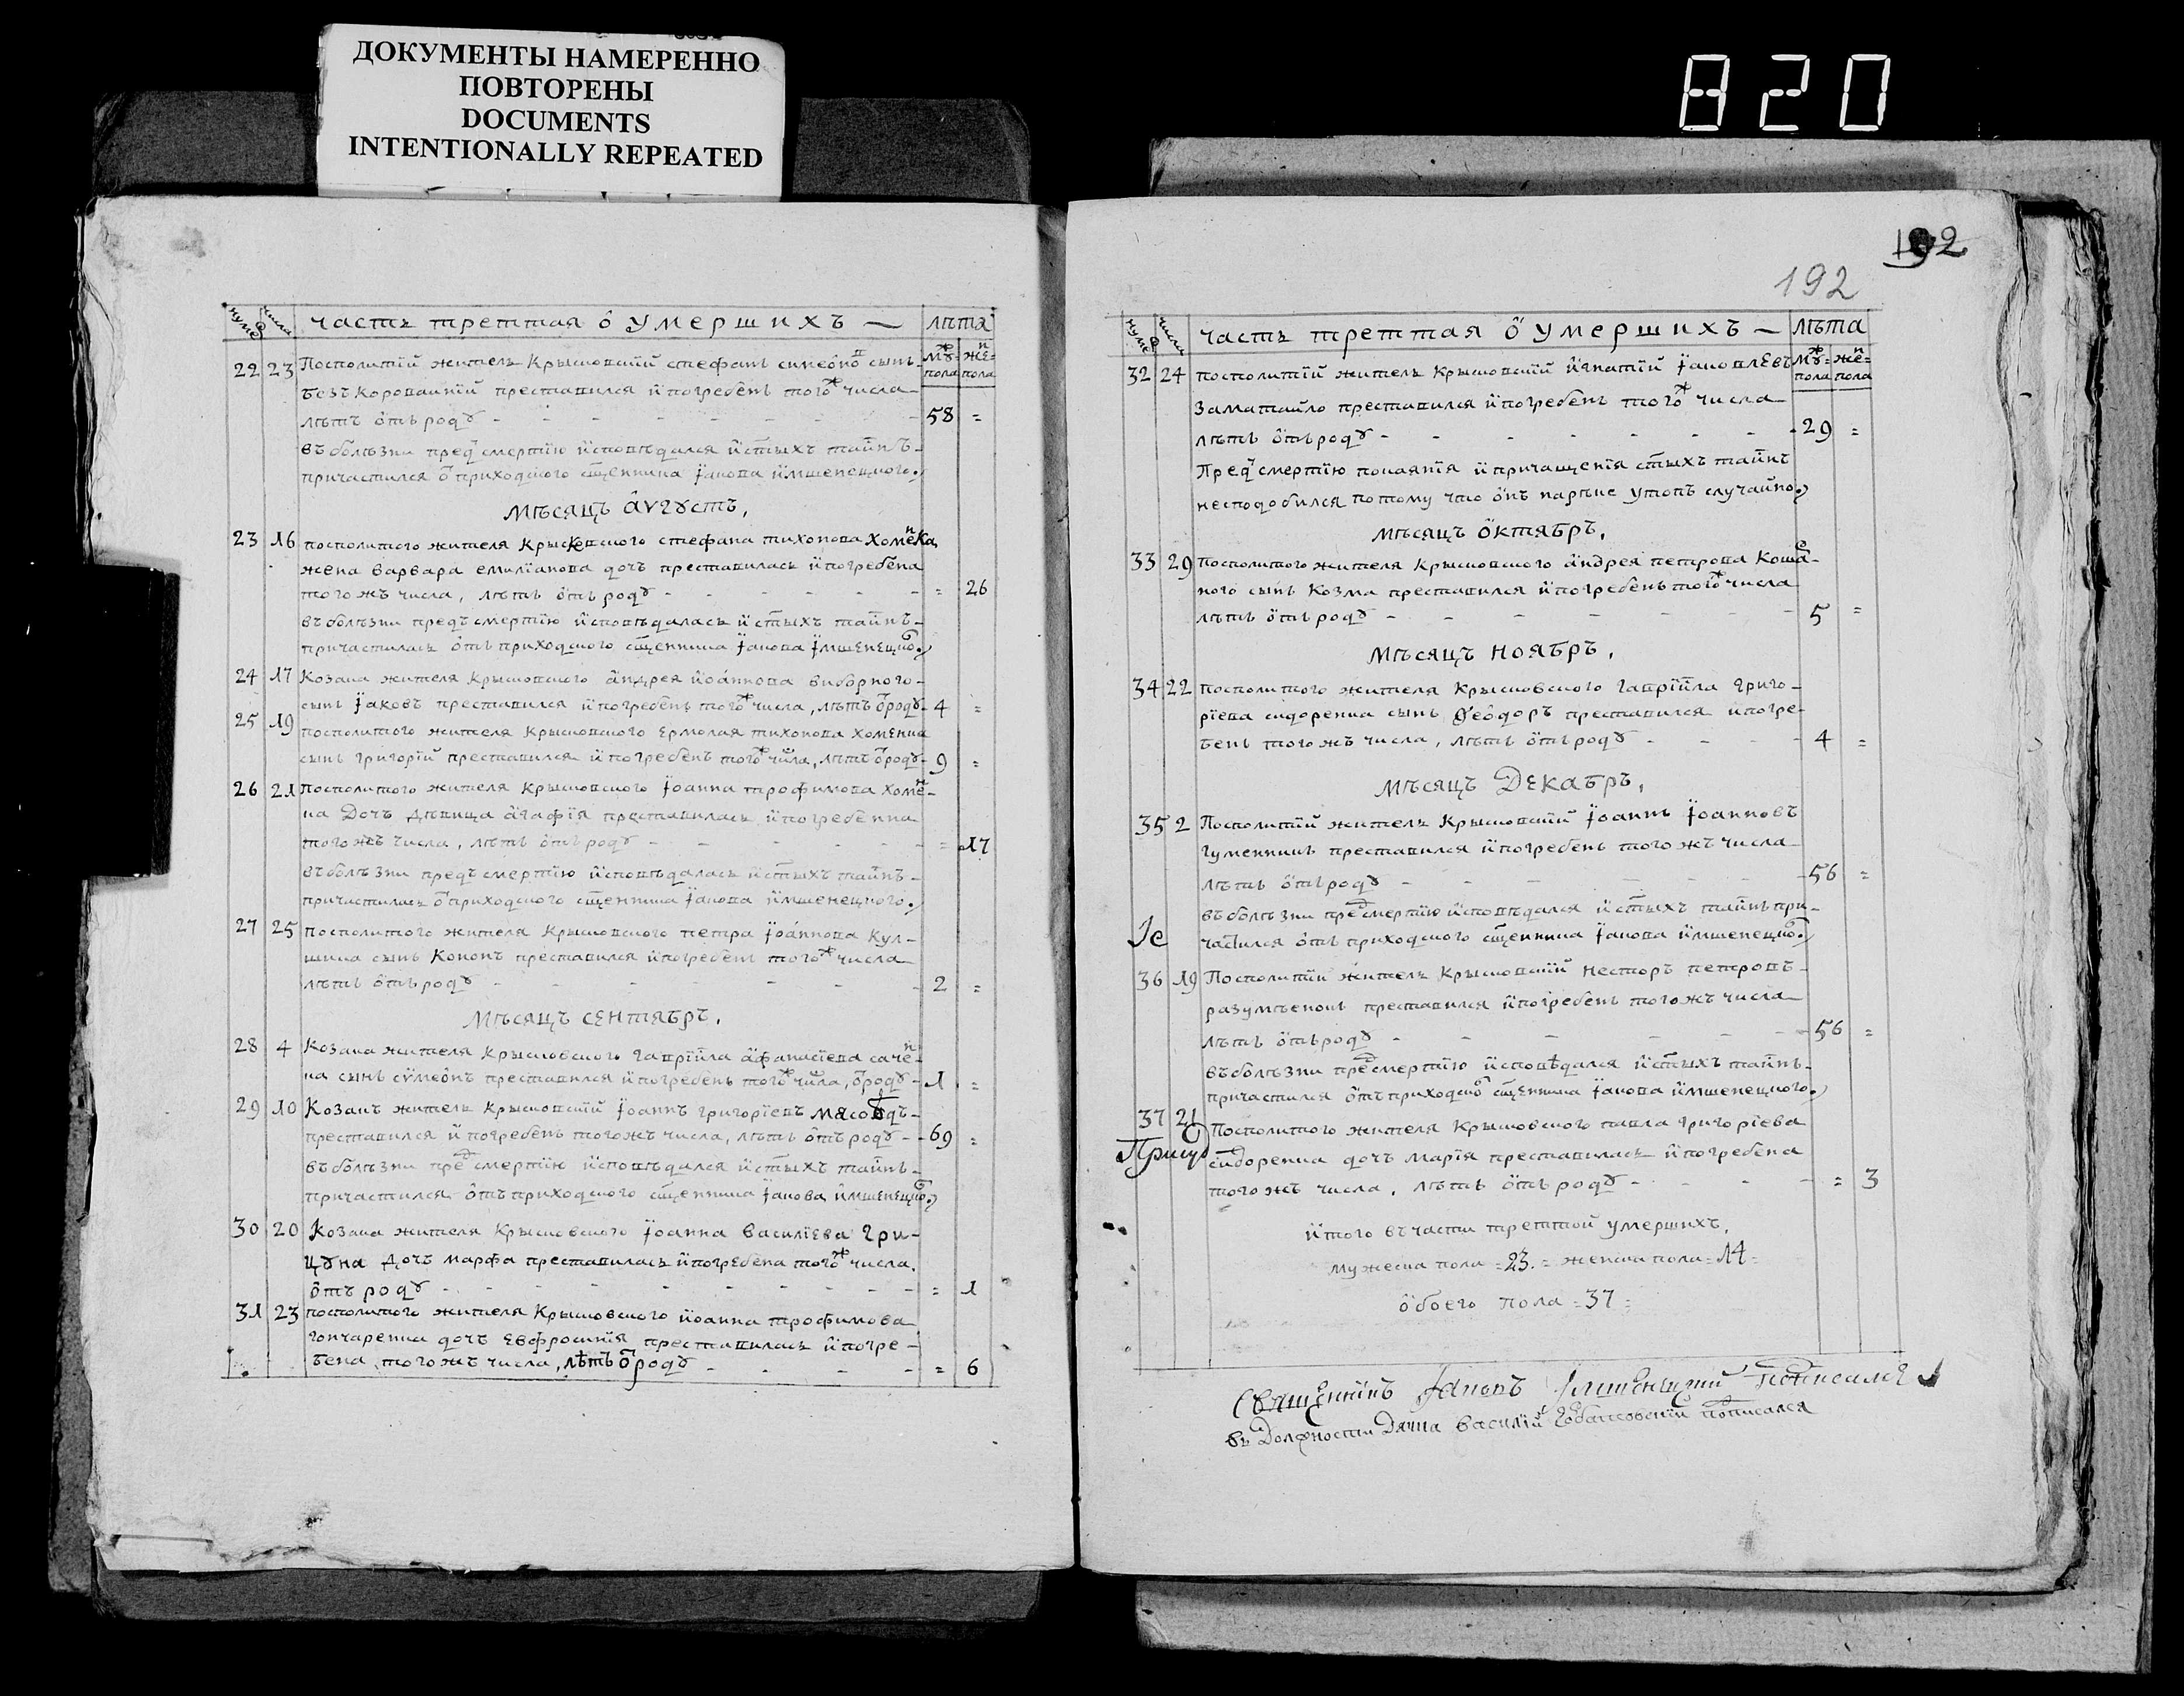 ДОКУМЕНТЫ НАМЕРЕННО
ПОВТОРЕНЫ
DOCUMENTS
INTENTIONALLY REPEATED
820
нумеръ числа часть треттая ѻ умершихъ — лѣта
муж= пола жен= пола
22 23 Посполитїй житель Крысковскїй стефанъ симеоновъ сынъ
безкороваинїй преставился и погребенъ тогож числа
лѣтъ ѿтъ роду - - - 58 =
въ болѣзни предъ смертїю исповѣдался и стыхъ таинъ
причастился ѿ приходского сщенника Їакова имшенецкого.
Мѣсяцъ аѵгустъ.
23 16 посполитого жителя Крысковского стефана тихонова Хоменка
жена варвара емилїанова дочъ преставилась и погребена
того жъ числа, лѣтъ ѿтъ роду - - - = 26
въ болѣзни предъ смертїю исповѣдалась и стыхъ таинъ
причастилась ѿтъ приходского сщенника Їакова Їмшенецког.
24 17 Козака жителя Крысковского андрея иоаннова виборного
сынъ Їаковъ преставился и погребенъ тогож числа, лѣтъ ѿ роду - 4 =
25 19 посполитого жителя Крысковского Ермолая тихонова Хоменка
сынъ григорїй преставился и погребенъ тогож числа, лѣтъ ѿ роду - 9 =
26 21 Посполитого жителя Крысковского Їоанна трофимова Хомен-
ка Дочъ дѣвица агафїя преставилась и погребенна
того жъ числа, лѣтъ ѿтъ роду - - - = 17
въ болѣзни предъ смертїю исповѣдалась и стыхъ таинъ
причастилась ѿ приходского сщенника Їакова имшенецкого.
27 25 посполитого жителя Крысковского петра Їоаннова Кул-
шика сынъ Кононъ преставился и погребенъ тогож числа
лѣтъ ѿтъ роду - - - 2 =
Мѣсяцъ сентябръ.
28 4 Козака жителя Крысковского гаврїила афанасїева сачен-
ка сынъ сѵмеонъ преставился и погребенъ тогож числа, ѿ роду - 1 =
29 10 Козакъ житель Крысковскїй Їоаннъ григорїевъ мясоѣдъ
преставился и погребенъ того жъ числа, лѣтъ ѿтъ роду - 69 =
въ болѣзни пред смертїю исповѣдался и стыхъ таинъ
причастился ѿтъ приходского сщенника Їакова имшенецког.
30 20 Козака жителя Крысковского Їоанна василїева Гри-
цуна дочъ марфа преставилась и погребена тогож числа.
ѿтъ роду - - - = 1
31 23 посполитого жителя Крысковского иоанна трофимова
гончаренка дочъ Евфросинїя преставилась и погре-
бена того жъ числа, лѣтъ ѿ роду - - - = 6
192
192
нумеръ числа часть треттая ѻ умершихъ — лѣта
муж= пола жен= пола
32 24 посполитїй житель Крысковскїй игнатїй Їаковлевъ
Заматайло преставился и погребенъ тогож числа
лѣтъ ѿтъ роду - - - 29 =
Предъ смертїю покаянїя и причащенїя стыхъ таинъ
несподобился потому что онъ нарѣке утопъ случайно.
Мѣсяцъ ѻктябръ.
33 29 посполитого жителя Крысковского андрея петрова Коша-
ного сынъ Козма преставился и погребенъ тогож числа
лѣтъ ѿтъ роду - - - 5 =
Мѣсяцъ ноябръ.
34 22 посполитого жителя Крысковского гаврїила григо-
рїева сидоренка сынъ Феодоръ преставился и погре-
бенъ того жъ числа, лѣтъ ѿтъ роду - - - 4 =
Мѣсяцъ Декабръ.
35 2 Посполитїй житель Крысковскїй Їоаннъ Їоанновъ
гуменникъ преставился и погребенъ того жъ числа
лѣтъ ѿтъ роду - - - 56 =
въ болѣзни пред смертїю исповѣдался и стыхъ таинъ при-
Їе частился ѿтъ приходского сщенника Їакова имшенецког.
36 19 Посполитїй житель Крысковскїй несторъ петровъ
разумѣнокъ преставился и погребенъ того жъ числа
лѣтъ ѿтъ роду - - - 56 =
въ болѣзни пред смертїю исповѣдался и стыхъ таинъ
причастился ѿтъ приходског сщенника Їакова имшенецкого.
37 21 Посполитого жителя Крысковского павла григорїева
сидоренка дочъ марїя преставилась и погребена
того жъ числа, лѣтъ ѿтъ роду - - - = 3
итого въ части треттой умершихъ,
мужеска пола =23.= женска пола =14=
ѻбоего пола =37=
Священникъ Їаковъ Їмшенецкий подписался
въ Должности Дячка василїй подписался